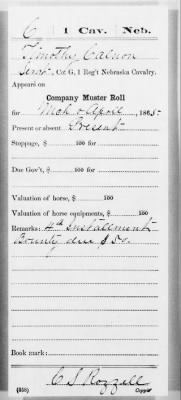 C | 1 Cav. | Neb.
Timothy Calnon
Sergt., Co. G, 1 Reg't Nebraska Cavalry.
Appears on
Company Muster Roll
for Mch & April, 1865
Present or absent Present
Stoppage, $ 100 for
Due Gov't, $ 100 for
Valuation of horse, $ 100
Valuation of horse equipments, $ 100
Remarks: 4th Installment
Bounty due $50.
Book mark:
C S Rozzell
(358) Copyist.